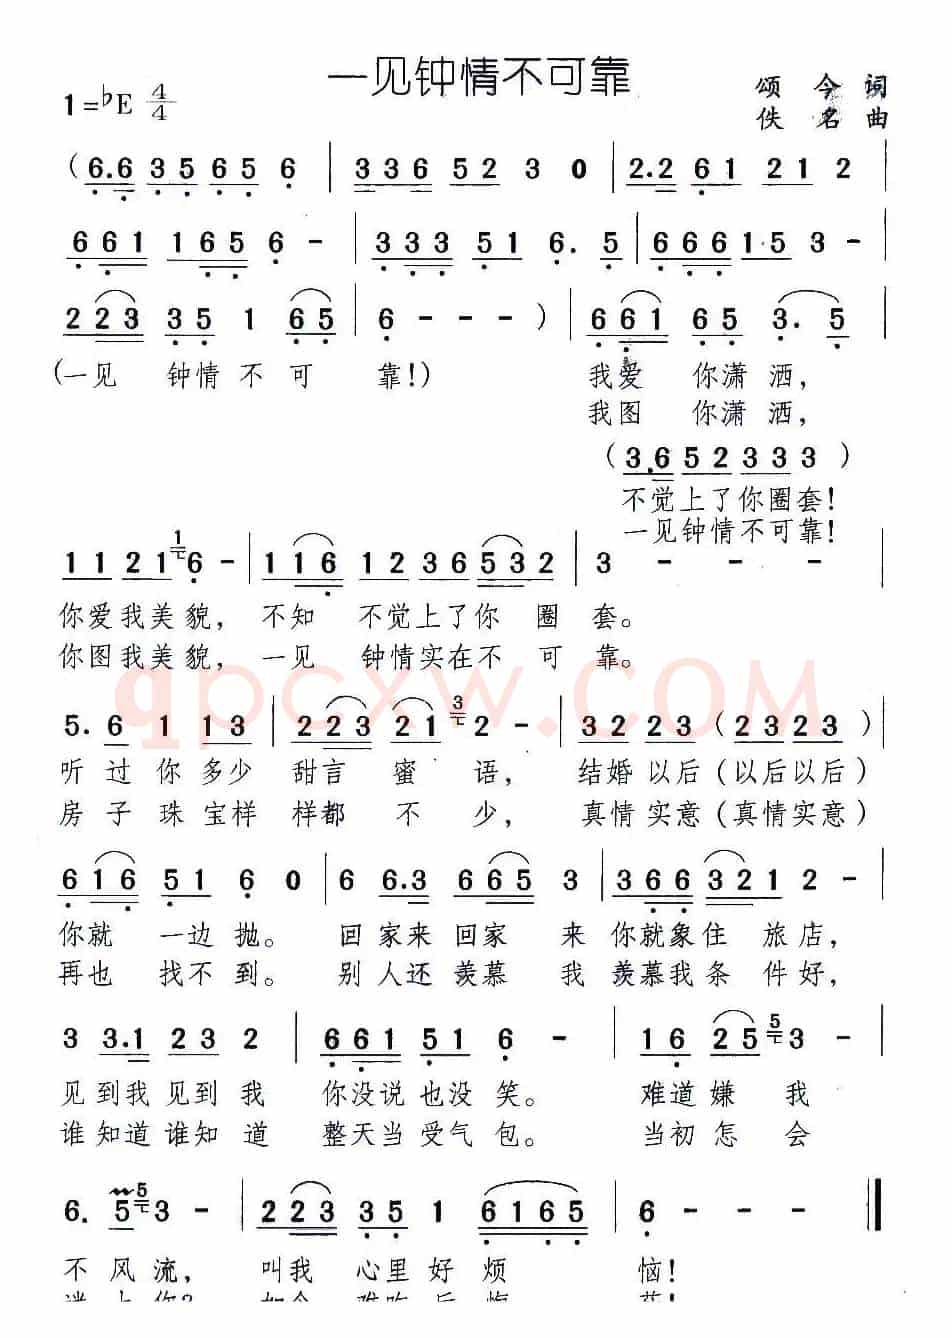 一见钟情不可靠
1=♭E 4/4
颂今词
佚名曲
(6.6 35 65 6 | 3 3 6 5 2 3 0 | 2.2 61 21 2 |
661 165 6 - | 333 51 6. 5 | 666 1·5 3 - |
223 35 1 65 | 6 - - -) | 661 65 3. 5 |
(一见 钟情不可 靠!) 我爱 你潇洒,
我图 你潇洒,
(3.6 5 2 3 3 3)
不觉上了你圈套!
一见钟情不可靠!
11 21 1 6 - | 116 1236 532 | 3 - - - |
你爱我美貌, 不知 不觉上了你圈 套。
你图我美貌, 一见 钟情实在不可 靠。
qpcxw.COM
5. 6 1 13 | 223 21 3 2 - | 32 23 (23 23) |
听过你多少 甜言蜜语, 结婚以后(以后以后)
房子珠宝样 样都不少, 真情实意(真情实意)
616 51 6 0 | 6 6.3 665 3 | 366 321 2 - |
你就 一边抛。 回家来回家 来 你就象住 旅店,
再也 找不到。 别人还羡慕 我 羡慕我条 件好,
3 3.1 23 2 | 661 51 6 - | 16 25 5 3 - |
见到我见到我 你没说也没笑。 难道嫌 我
谁知道谁知道 整天当受气包。 当初怎 会
6. 5 5 3 - | 223 35 1 6165 | 6 - - - ‖
不风流, 叫我 心里好烦 恼!